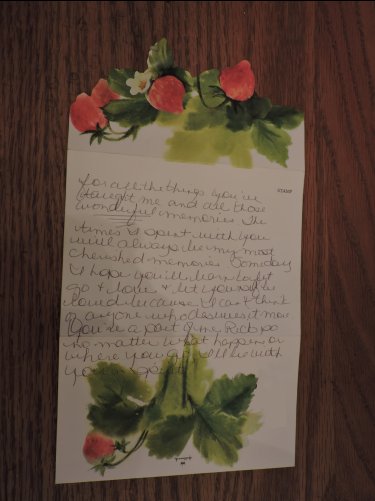 for all the things you've
taught me and all those
wonderful memories. The
times I spent with you
will always be my most
cherished memories. Someday
I hope you'll learn to let
go & love & let yourself be
loved because I can't think
of anyone who deserves it more
You're a part of me Rick so
no matter what happens or
where you go I'll be with
you in spirit